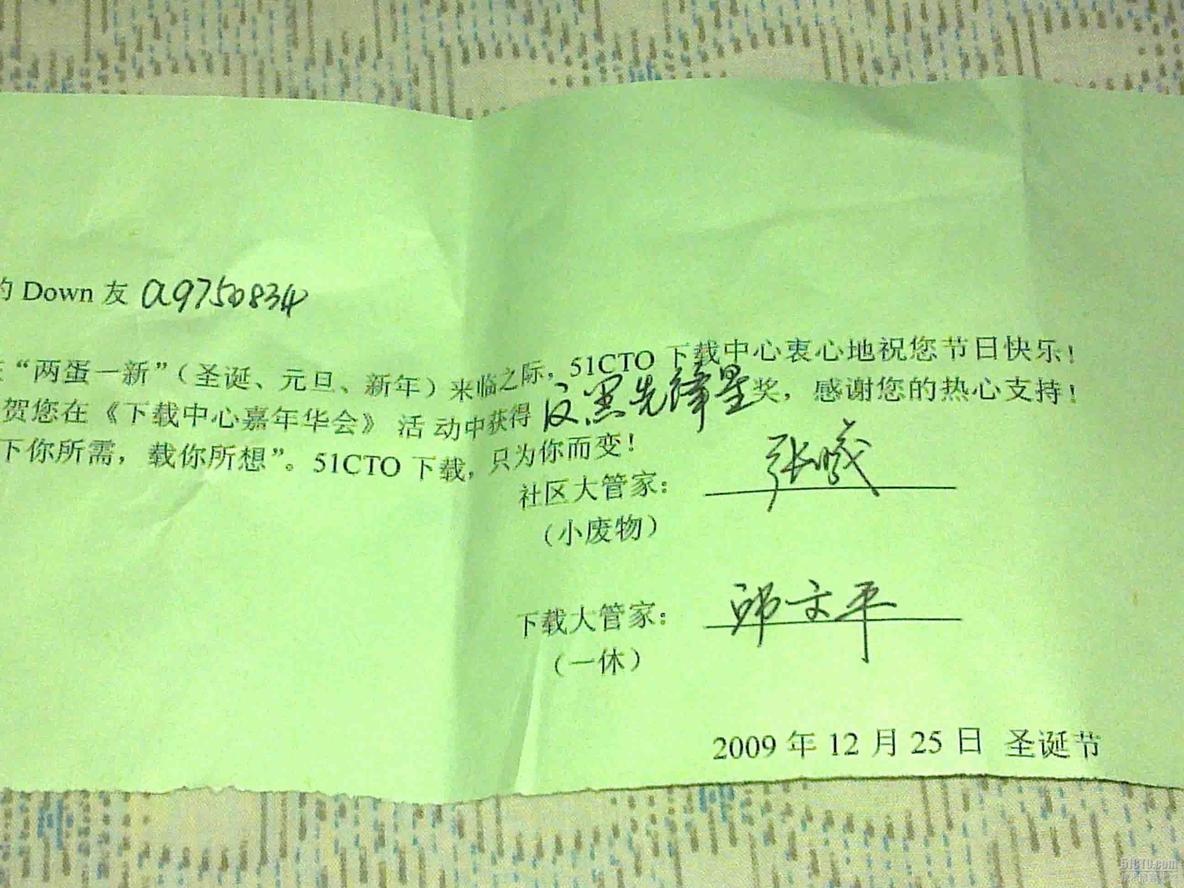 的 Down 友 a9750834
在“两蛋一新”（圣诞、元旦、新年）来临之际，51CTO 下载中心衷心地祝您节日快乐！
贺您在《下载中心嘉年华会》活动中获得 反黑先锋星奖，感谢您的热心支持！
下你所需，载你所想”。51CTO 下载，只为你而变！
社区大管家： 张曦
（小废物）
下载大管家： 邱文平
（一休）
2009 年 12 月 25 日 圣诞节
51CTO.com